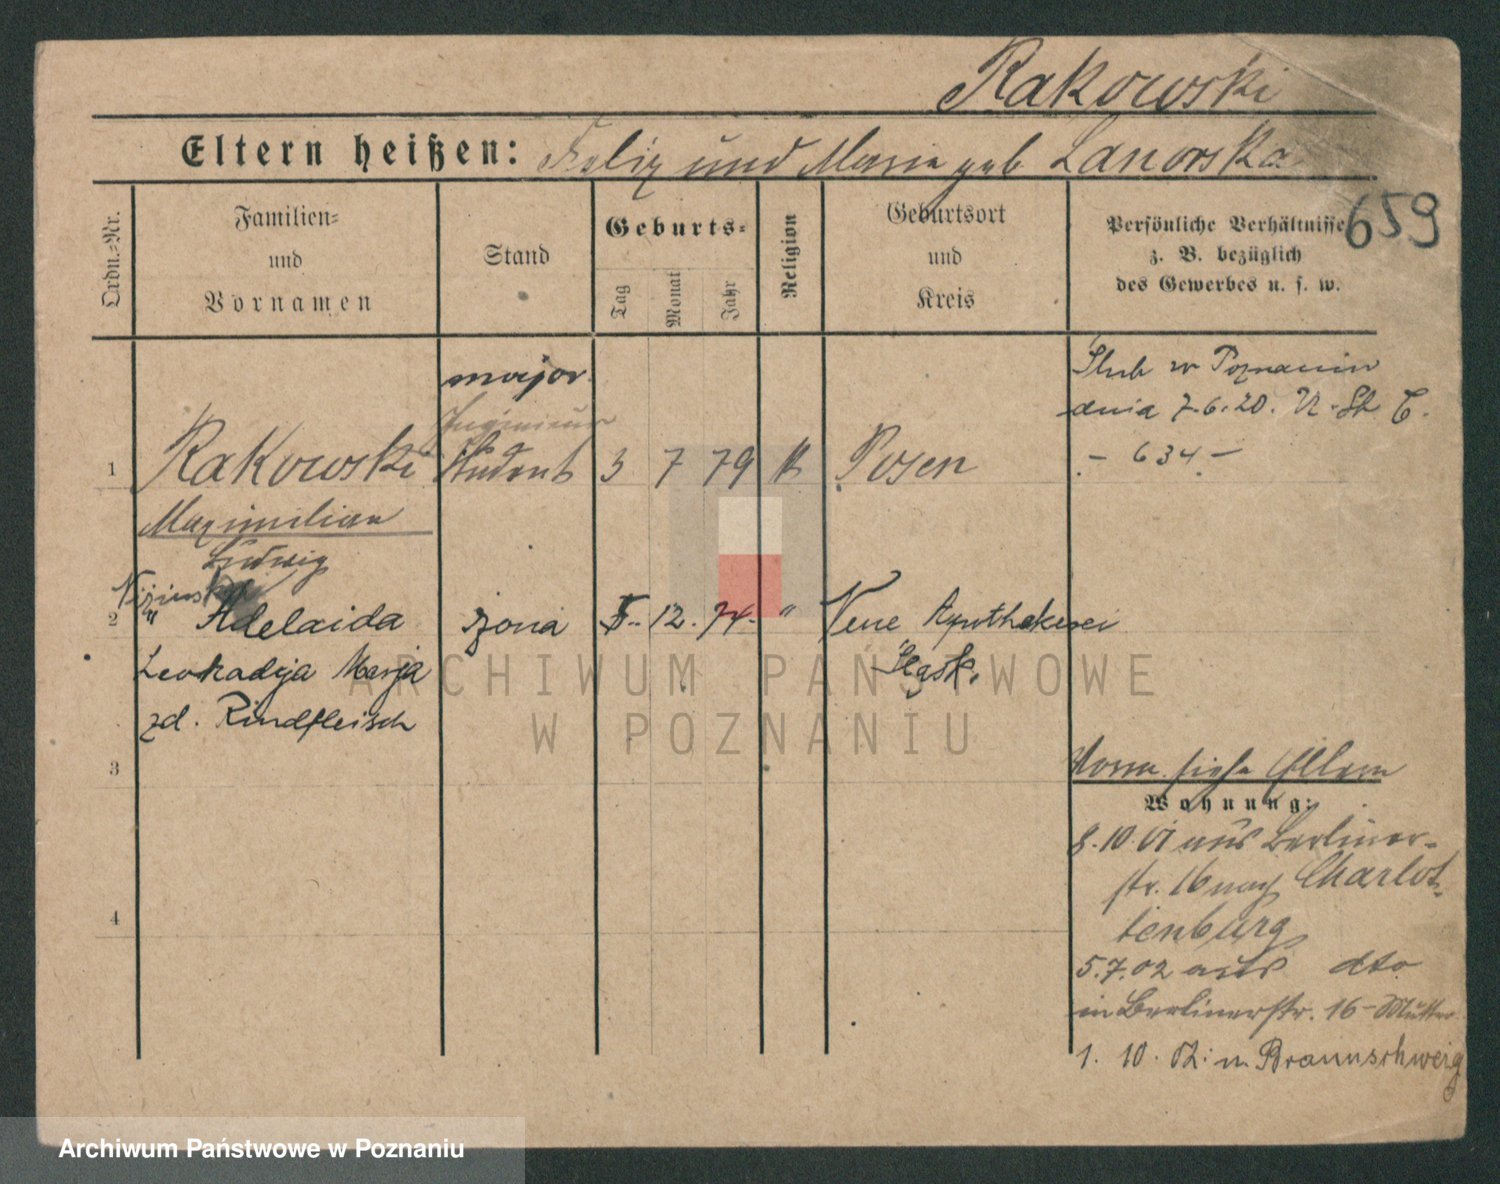 Rakowski
Eltern heißen: Felix und Maria geb Lanowska
659
Ordn.-Nr.
Familien-
und
Vornamen
Stand
Geburts-
Tag
Monat
Jahr
Religion
Geburtsort
und
Kreis
Persönliche Verhältnisse
z. B. bezüglich
des Gewerbes u. s. w.
major
Ingenieur
1 Rakowski Student 3 7 79 k Posen
Maximilian
Ludwig
Ślub w Poznaniu
dnia 7.6.20.
- 634 -
2 " Adelaida żona 12. 74. " Neue Apothekerei
Leokadja Marja Śląsk.
zd. Rindfleisch
3
4
siehe Eltern
Wohnung:
8.10.01 aus Berliner-
str. 16 nach Charlot-
tenburg
5.7.02 aus dto
in Berlinerstr. 16 - Mutter
1. 10. 02: n. Braunschweig
ARCHIWUM PAŃSTWOWE
W POZNANIU
Archiwum Państwowe w Poznaniu